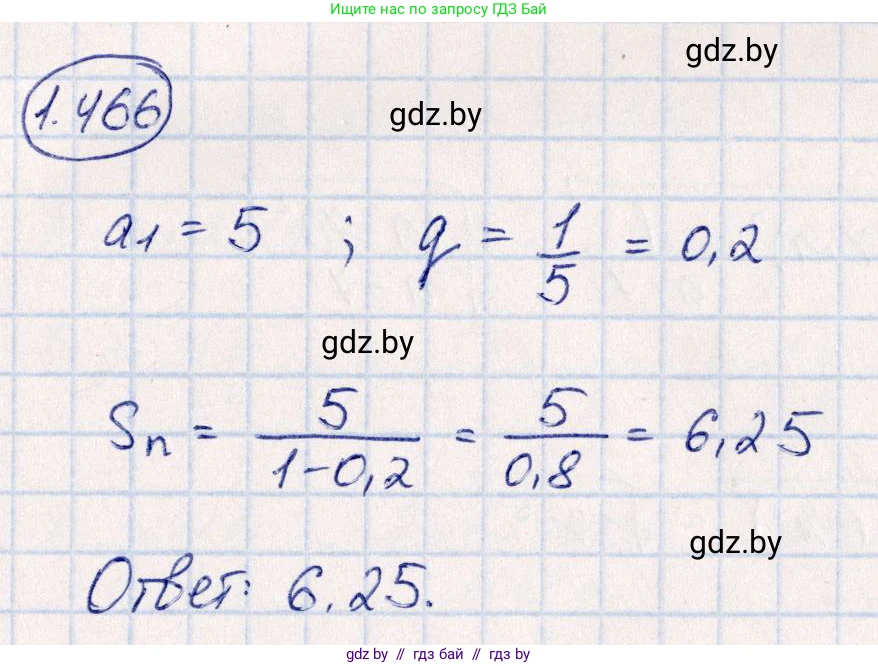 Ищите нас по запросу ГДЗ Бай
gdz.by
1.466
gdz.by
a₁ = 5 ; q = 1/5 = 0,2
gdz.by
Sₙ = 5/(1-0,2) = 5/0,8 = 6,25
gdz.by
Ответ: 6.25.
gdz.by // гдз бай // гдз by